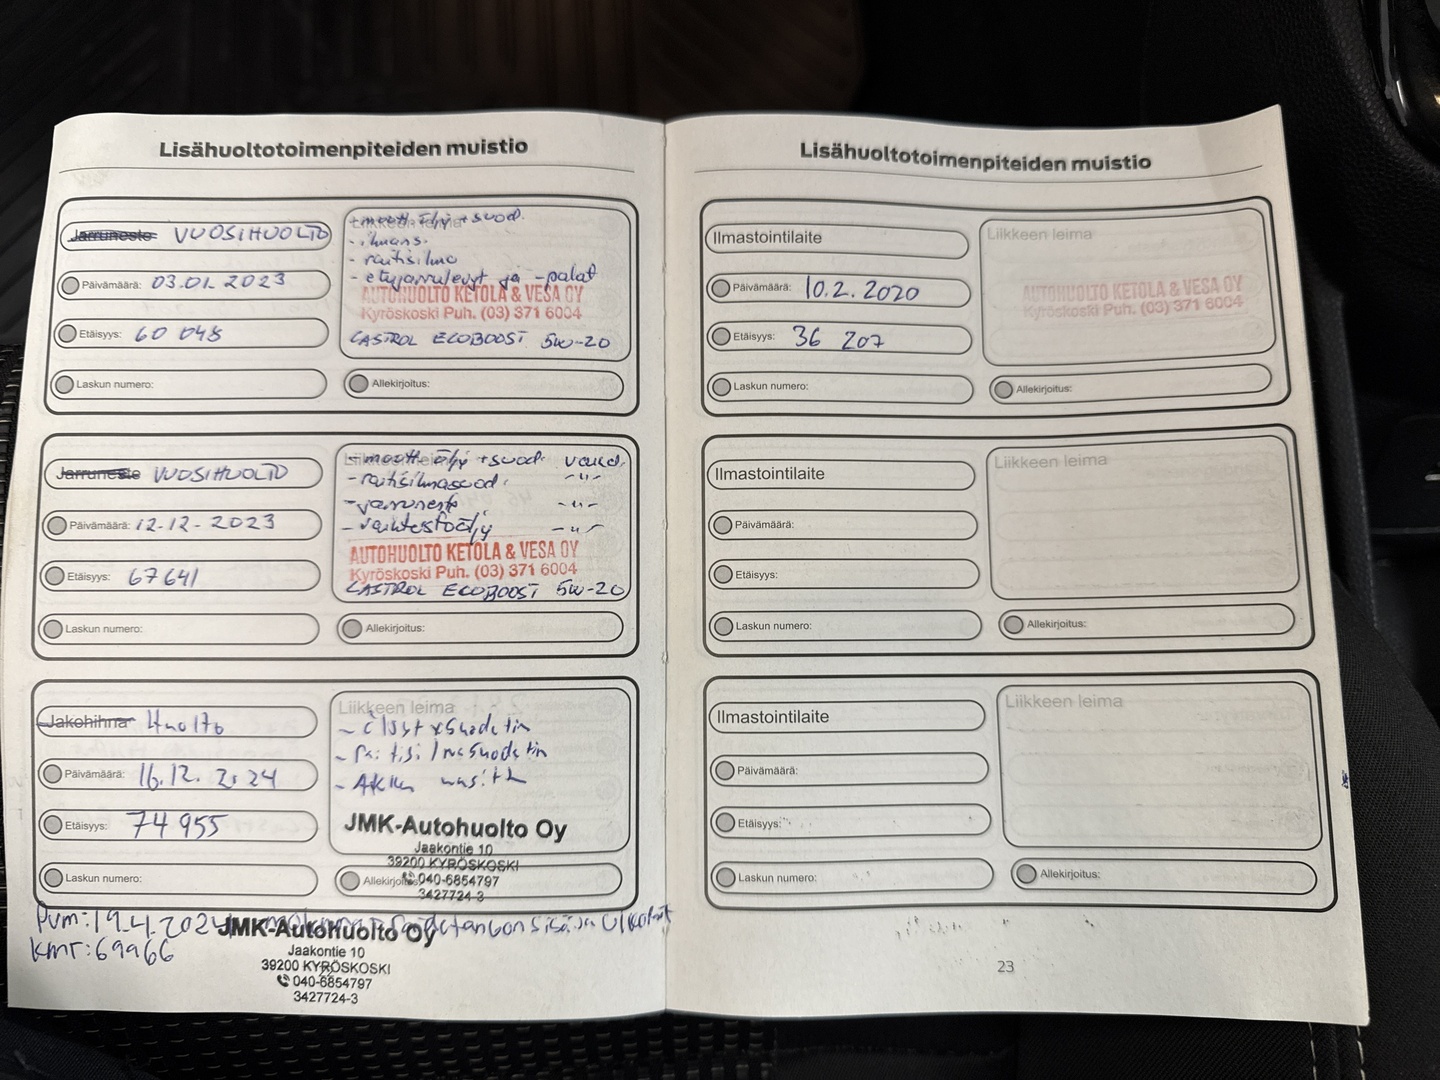 Lisähuoltotoimenpiteiden muistio
Jarruneste VUOSIHUOLTO
Päivämäärä: 03.01.2023
Etäisyys: 60 048
Laskun numero:
Liikkeen leima
- moott. öljy + suod.
- ilmans.
- raitisilma
- etujarrulevyt ja -palat
AUTOHUOLTO KETOLA & VESA OY
Kyröskoski Puh. (03) 371 6004
CASTROL ECOBOOST 5W-20
Allekirjoitus:
Jarruneste VUOSIHUOLTO
Päivämäärä: 12-12-2023
Etäisyys: 67641
Laskun numero:
Liikkeen leima
- moott. öljy + suod. vaihd.
- raitisilmasuod. -"-
- jarruneste -"-
- vaihteistoöljy -"-
AUTOHUOLTO KETOLA & VESA OY
Kyröskoski Puh. (03) 371 6004
CASTROL ECOBOOST 5W-20
Allekirjoitus:
Jakohihna Huolto
Päivämäärä: 16.12. 2024
Etäisyys: 74 955
Laskun numero:
Liikkeen leima
- Öljyt + Suodatin
- Raitisilmasuodatin
- Akku uusittu
JMK-Autohuolto Oy
Jaakontie 10
39200 KYRÖSKOSKI
040-6854797
3427724-3
Allekirjoitus:
Pvm: 19.4.2024 sisä ja ulko
kmt: 69966
JMK-Autohuolto Oy
Jaakontie 10
39200 KYRÖSKOSKI
22
040-6854797
3427724-3
Lisähuoltotoimenpiteiden muistio
Ilmastointilaite
Päivämäärä: 10.2.2020
Etäisyys: 36 207
Laskun numero:
Liikkeen leima
AUTOHUOLTO KETOLA & VESA OY
Kyröskoski Puh. (03) 371 6004
Allekirjoitus:
Ilmastointilaite
Päivämäärä:
Etäisyys:
Laskun numero:
Liikkeen leima
Allekirjoitus:
Ilmastointilaite
Päivämäärä:
Etäisyys:
Laskun numero:
Liikkeen leima
Allekirjoitus:
23